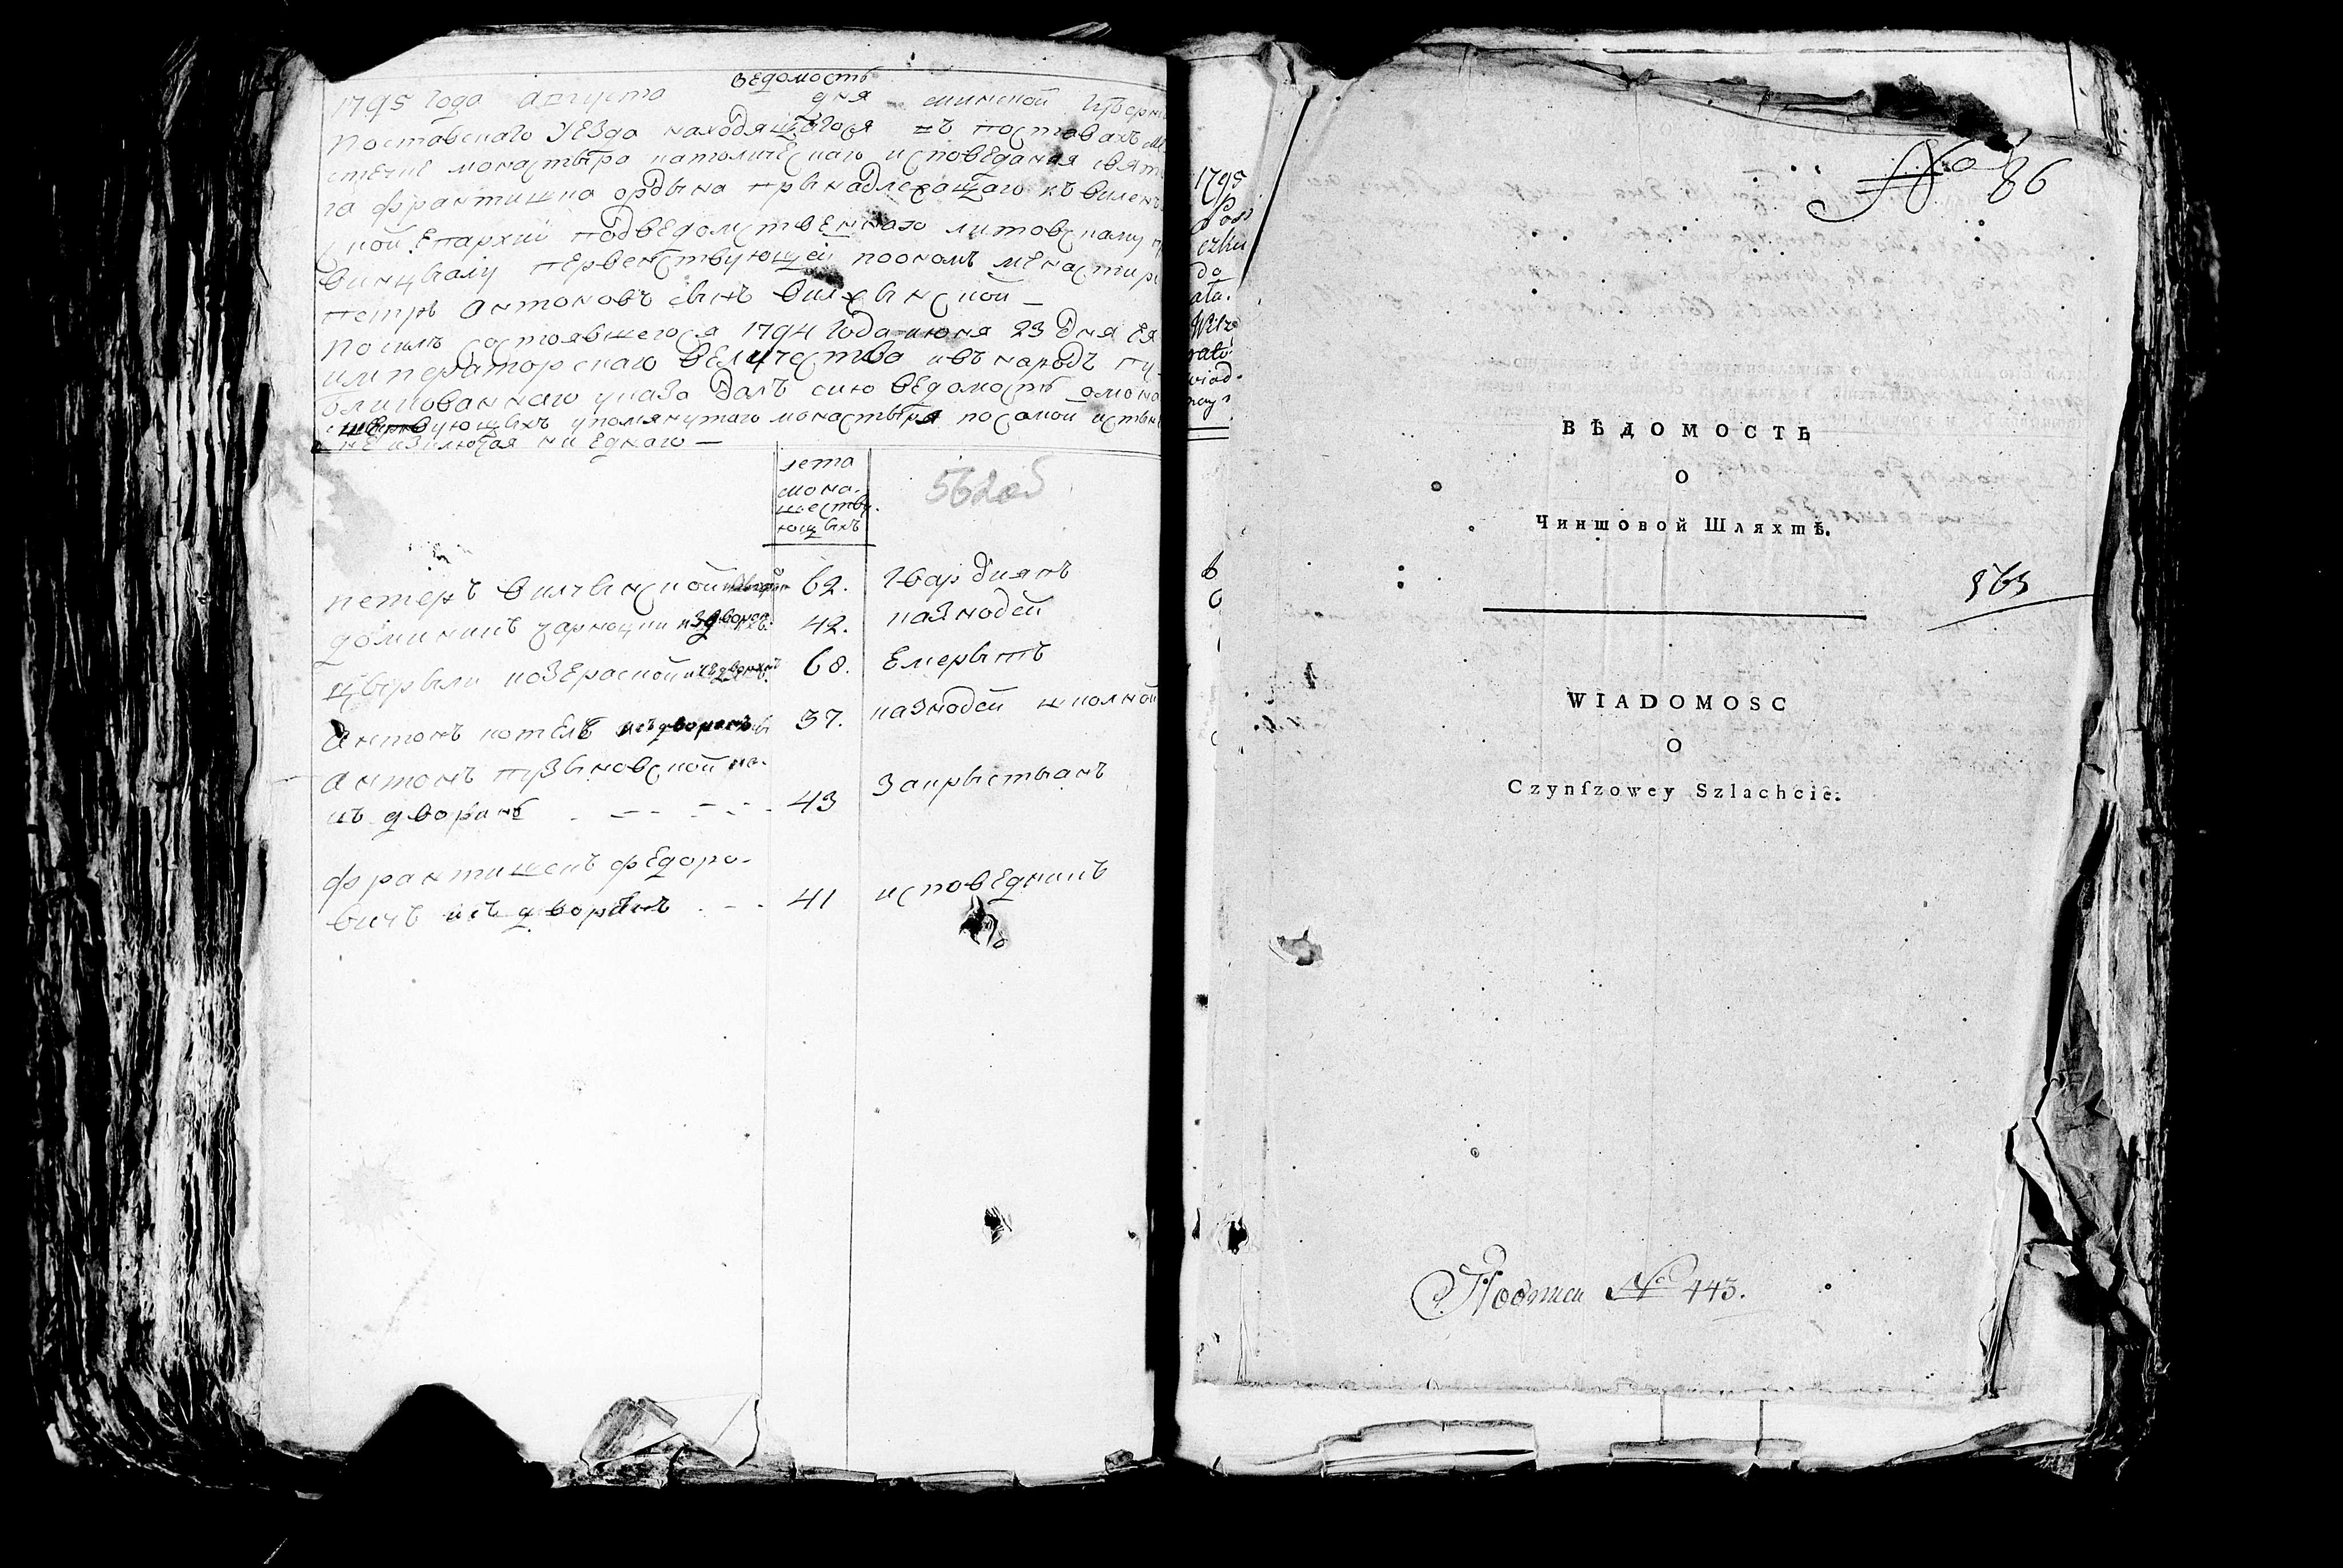 вЕдомость
1795 года августа дня минской Губерн
Поставского уЕзда находящагося въ поставахъ мЕ
стЕчкЕ монастыра католичЕскаго исповЕдания свят
га францишка ордына прынадлежащаго къ вилен
ской Епархии подвЕдомственнаго литовскому про
винцыалу пЕрвенствующей поономъ мЕнастире
пётръ антоновъ сынъ вилчынской —
По силЕ состоявшегося 1794 года июня 23 дня Ея
императорскаго вЕличества ивъ народъ пу
бликованнаго указа далъ сию вЕдомость омона
шествующыхъ упомянутаго монастыря по самой истын
нЕ изключая ни Еднаго —
лета
мона-
шеству-
ющыхъ
562об
петеръ вилчынской 62. гвардиянъ
доминикъ чарноцки издворанъ 42. казнодей
козЕраской издворанъ 68. Емерытъ
Антонъ котЕлъ исъдворанъ 37. казнодей школной
Антонъ пузыновской
исъ дворанъ - - - - 43 Закрыстыанъ
францишекъ фЕдоро-
вичъ исъ дворанъ - - 41 исповЕдникъ
1795
ezku
do
ata.
Wilz
wiad-
№ 86
ВѢДОМОСТЬ
О
Чиншовой Шляхтѣ.
563
WIADOMOSC
O
Czynſzowey Szlachcie.
Подтки № 443.